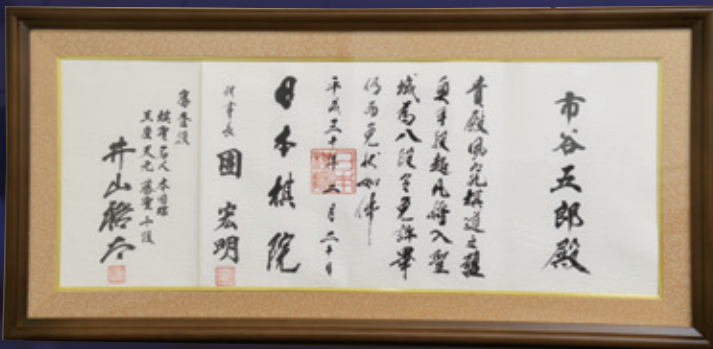 市谷五郎殿
貴殿夙究棋道之蘊
奥手段超凡将入聖
域為八段令免許畢
仍而免状如件
平成三十年二月二十日
日本棋院
理事長 團 宏明
審査役
棋聖名人本因坊
王座天元碁聖十段
井山裕太